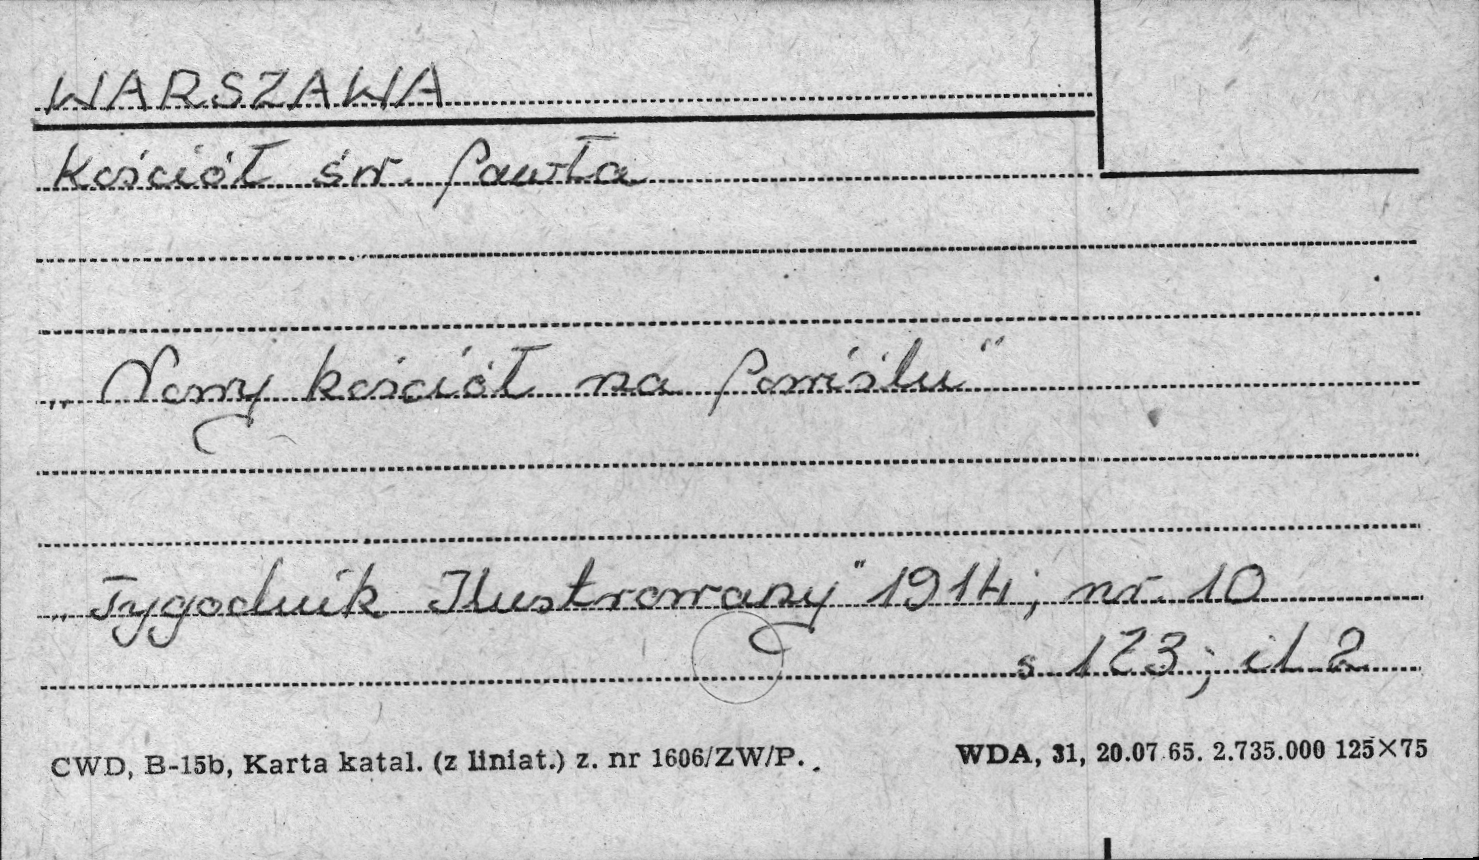 WARSZAWA
kościół św. Pawła
„Nowy kościół na Powiślu"
„Tygodnik Ilustrowany" 1914; nr. 10
s 123; il 2
CWD, B-15b, Karta katal. (z liniat.) z. nr 1606/ZW/P.
WDA, 31, 20.07.65. 2.735.000 125×75